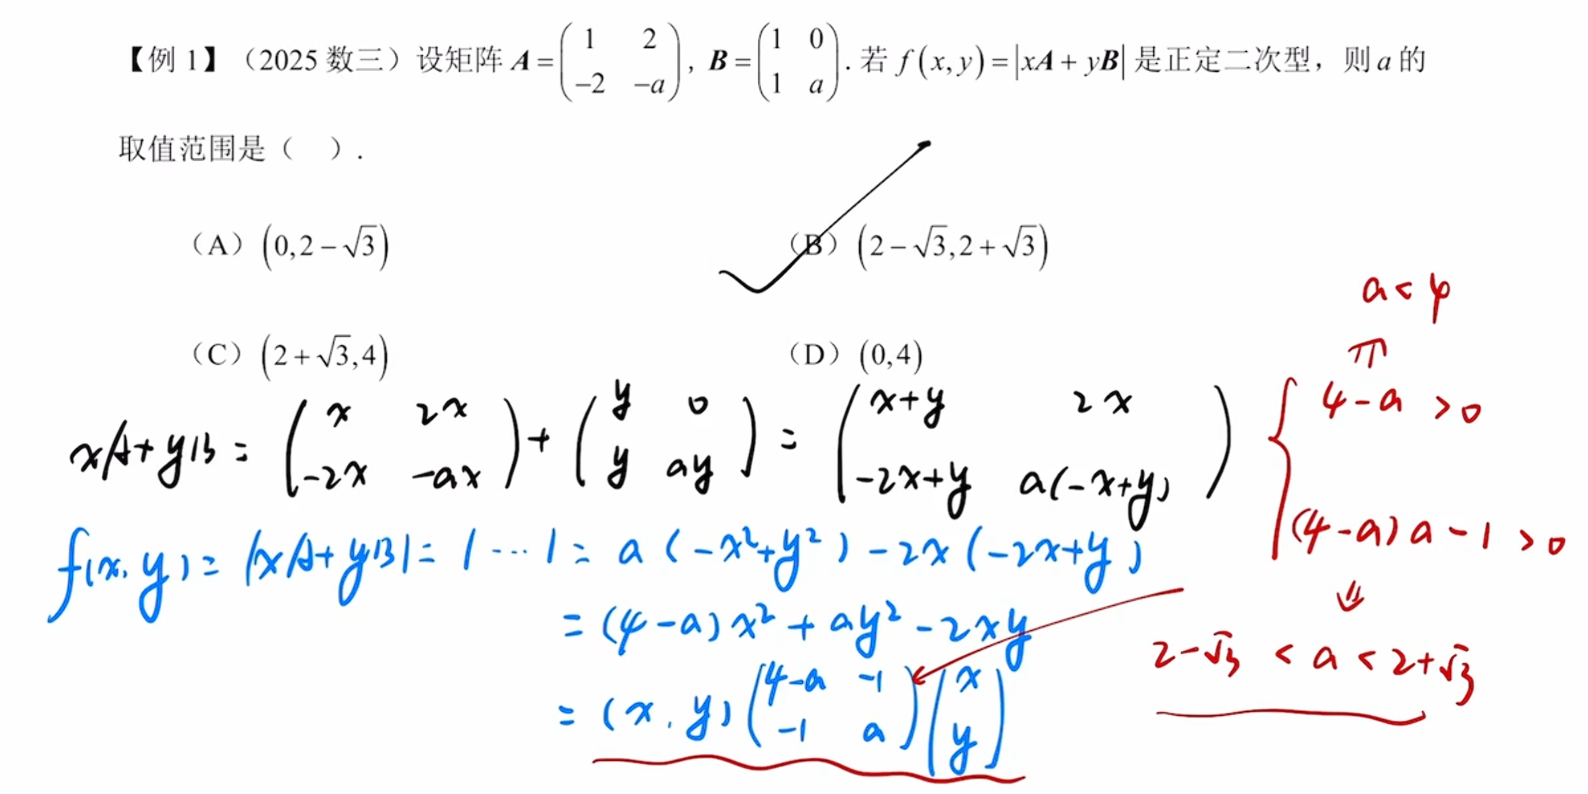 【例 1】（2025 数三）设矩阵 A = \begin{pmatrix} 1 & 2 \\ -2 & -a \end{pmatrix}, B = \begin{pmatrix} 1 & 0 \\ 1 & a \end{pmatrix}. 若 f(x,y) = |xA + yB| 是正定二次型，则 a 的
取值范围是（　）.
（A）(0, 2-√3)　（B）(2-√3, 2+√3)
（C）(2+√3, 4)　（D）(0, 4)
xA+yB = \begin{pmatrix} x & 2x \\ -2x & -ax \end{pmatrix} + \begin{pmatrix} y & 0 \\ y & ay \end{pmatrix} = \begin{pmatrix} x+y & 2x \\ -2x+y & a(-x+y) \end{pmatrix}
f(x,y) = |xA+yB| = |⋯| = a(-x²+y²) - 2x(-2x+y)
= (4-a)x² + ay² - 2xy
= (x, y) \begin{pmatrix} 4-a & -1 \\ -1 & a \end{pmatrix} \begin{pmatrix} x \\ y \end{pmatrix}
a < 4
⇑
{ 4-a > 0
(4-a)a - 1 > 0
⇓
2-√3 < a < 2+√3